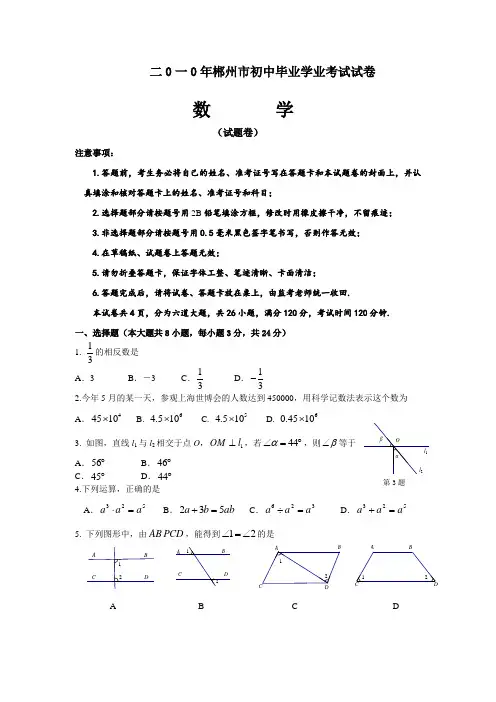 二0一0年郴州市初中毕业学业考试试卷
数 学
（试题卷）
注意事项：
1.答题前，考生务必将自己的姓名、准考证号写在答题卡和本试题卷的封面上，并认
真填涂和核对答题卡上的姓名、准考证号和科目；
2.选择题部分请按题号用2B铅笔填涂方框，修改时用橡皮擦干净，不留痕迹；
3.非选择题部分请按题号用0.5毫米黑色签字笔书写，否则作答无效；
4.在草稿纸、试题卷上答题无效；
5.请勿折叠答题卡，保证字体工整、笔迹清晰、卡面清洁；
6.答题完成后，请将试卷、答题卡放在桌上，由监考老师统一收回.
本试卷共4页，分为六道大题，共26小题，满分120分，考试时间120分钟.
一、选择题（本大题共8小题，每小题3分，共24分）
1. 1/3 的相反数是
A．3 B．－3 C．1/3 D．−1/3
2.今年5月的某一天，参观上海世博会的人数达到450000，用科学记数法表示这个数为
A．45×10⁴ B. 4.5×10⁶ C. 4.5×10⁵ D. 0.45×10⁶
3. 如图，直线l₁与l₂相交于点O，OM⊥l₁，若∠α=44°，则∠β等于
A．56° B．46°
C．45° D．44°
β O
α l₁
l₂
第3题
4.下列运算，正确的是
A．a³·a²=a⁵ B．2a+3b=5ab C．a⁶÷a²=a³ D．a³+a²=a⁵
5. 下列图形中，由AB PCD，能得到∠1=∠2的是
A B 1 C 2 D
A 1 B C D 2
A B 1 2 C D
A B 1 2 C D
A B C D